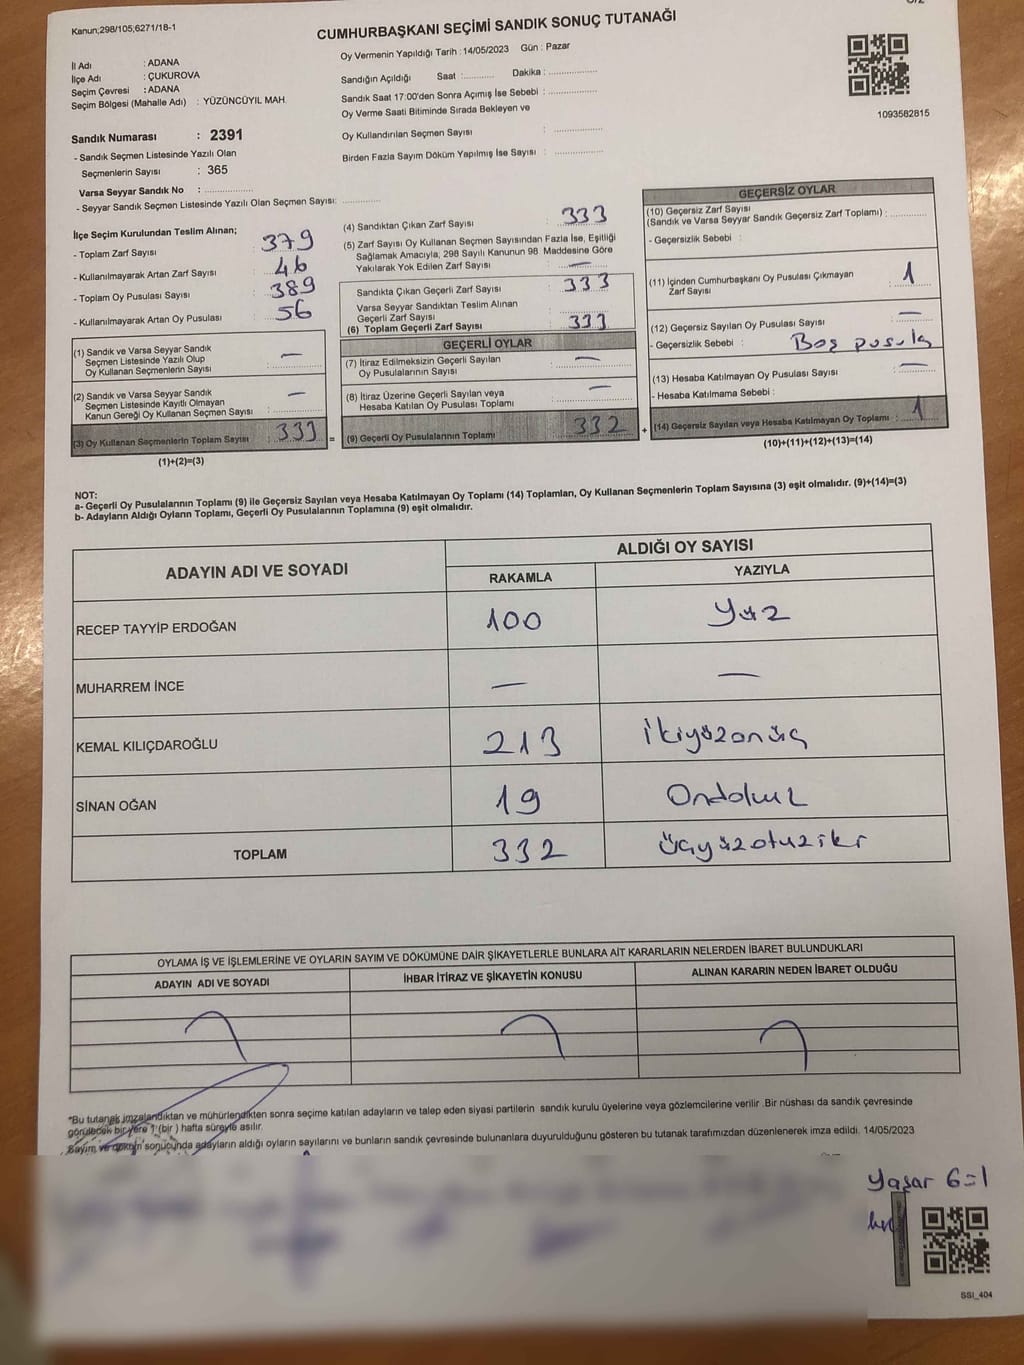 Kanun;298/105;6271/18-1
CUMHURBAŞKANI SEÇİMİ SANDIK SONUÇ TUTANAĞI
İl Adı : ADANA
İlçe Adı : ÇUKUROVA
Seçim Çevresi : ADANA
Seçim Bölgesi (Mahalle Adı) : YÜZÜNCÜYIL MAH.
Sandık Numarası : 2391
- Sandık Seçmen Listesinde Yazılı Olan
Seçmenlerin Sayısı : 365
Varsa Seyyar Sandık No : ..............
- Seyyar Sandık Seçmen Listesinde Yazılı Olan Seçmen Sayısı: ..............
Oy Vermenin Yapıldığı Tarih : 14/05/2023 Gün : Pazar
Sandığın Açıldığı Saat :.......... Dakika : ..............
Sandık Saat 17:00'den Sonra Açımış İse Sebebi : ..............
Oy Verme Saati Bitiminde Sırada Bekleyen ve
Oy Kullandırılan Seçmen Sayısı : ..............
Birden Fazla Sayım Döküm Yapılmış İse Sayısı : ..............
1093582815
İlçe Seçim Kurulundan Teslim Alınan;
- Toplam Zarf Sayısı : 379
- Kullanılmayarak Artan Zarf Sayısı : 46
- Toplam Oy Pusulası Sayısı : 389
- Kullanılmayarak Artan Oy Pusulası : 56
(1) Sandık ve Varsa Seyyar Sandık
Seçmen Listesinde Yazılı Olup
Oy Kullanan Seçmenlerin Sayısı : —
(2) Sandık ve Varsa Seyyar Sandık
Seçmen Listesinde Kayıtlı Olmayan
Kanun Gereği Oy Kullanan Seçmen Sayısı : —
(3) Oy Kullanan Seçmenlerin Toplam Sayısı : 333 =
(1)+(2)=(3)
(4) Sandıktan Çıkan Zarf Sayısı : 333
(5) Zarf Sayısı Oy Kullanan Seçmen Sayısından Fazla İse, Eşitliği
Sağlamak Amacıyla, 298 Sayılı Kanunun 98 Maddesine Göre
Yakılarak Yok Edilen Zarf Sayısı : —
Sandıkta Çıkan Geçerli Zarf Sayısı : 333
Varsa Seyyar Sandıktan Teslim Alınan
Geçerli Zarf Sayısı :
(6) Toplam Geçerli Zarf Sayısı : 333
GEÇERLİ OYLAR
(7) İtiraz Edilmeksizin Geçerli Sayılan
Oy Pusulalarının Sayısı : —
(8) İtiraz Üzerine Geçerli Sayılan veya
Hesaba Katılan Oy Pusulası Toplamı : —
(9) Geçerli Oy Pusulalarının Toplamı : 332 +
GEÇERSİZ OYLAR
(10) Geçersiz Zarf Sayısı
(Sandık ve Varsa Seyyar Sandık Geçersiz Zarf Toplamı) : ..........
- Geçersizlik Sebebi :
(11) İçinden Cumhurbaşkanı Oy Pusulası Çıkmayan
Zarf Sayısı : 1
(12) Geçersiz Sayılan Oy Pusulası Sayısı : —
- Geçersizlik Sebebi : Boş pusula
(13) Hesaba Katılmayan Oy Pusulası Sayısı : —
- Hesaba Katılmama Sebebi :
(14) Geçersiz Sayılan veya Hesaba Katılmayan Oy Toplamı : 1
(10)+(11)+(12)+(13)=(14)
NOT:
a- Geçerli Oy Pusulalarının Toplamı (9) ile Geçersiz Sayılan veya Hesaba Katılmayan Oy Toplamı (14) Toplamları, Oy Kullanan Seçmenlerin Toplam Sayısına (3) eşit olmalıdır. (9)+(14)=(3)
b- Adayların Aldığı Oyların Toplamı, Geçerli Oy Pusulalarının Toplamına (9) eşit olmalıdır.
ADAYIN ADI VE SOYADI ALDIĞI OY SAYISI
RAKAMLA YAZIYLA
RECEP TAYYİP ERDOĞAN 100 Yüz
MUHARREM İNCE — —
KEMAL KILIÇDAROĞLU 213 İkiyüzonüç
SİNAN OĞAN 19 Ondokuz
TOPLAM 332 üçyüzotuziki
OYLAMA İŞ VE İŞLEMLERİNE VE OYLARIN SAYIM VE DÖKÜMÜNE DAİR ŞİKAYETLERLE BUNLARA AİT KARARLARIN NELERDEN İBARET BULUNDUKLARI
ADAYIN ADI VE SOYADI İHBAR İTİRAZ VE ŞİKAYETİN KONUSU ALINAN KARARIN NEDEN İBARET OLDUĞU
*Bu tutanak imzalandıktan ve mühürlendikten sonra seçime katılan adayların ve talep eden siyasi partilerin sandık kurulu üyelerine veya gözlemcilerine verilir .Bir nüshası da sandık çevresinde
görülecek bir yere 1 (bir ) hafta süreyle asılır.
Sayım ve döküm sonucunda adayların aldığı oyların sayılarını ve bunların sandık çevresinde bulunanlara duyurulduğunu gösteren bu tutanak tarafımızdan düzenlenerek imza edildi. 14/05/2023
Yaşar
SSI_404